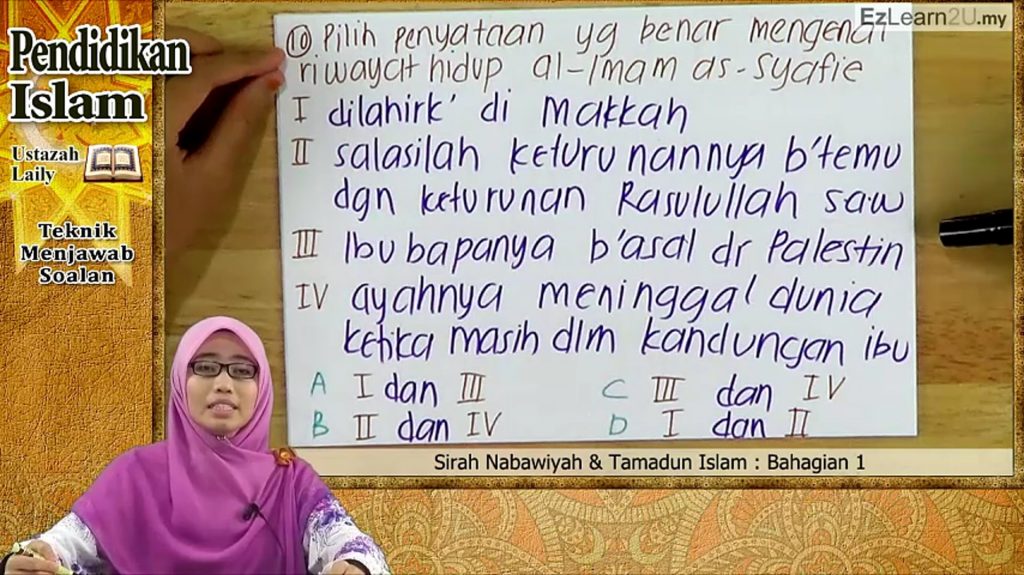 EzLearn2U.my
Pendidikan
Islam
Ustazah
Laily
Teknik
Menjawab
Soalan
10 Pilih penyataan yg benar mengenai
riwayat hidup al-Imam as-Syafie
I dilahirk' di Makkah
II salasilah keturunannya b'temu
dgn keturunan Rasulullah saw
III Ibu bapanya b'asal dr Palestin
IV ayahnya meninggal dunia
ketika masih dlm kandungan ibu
A I dan III C III dan IV
B II dan IV D I dan II
Sirah Nabawiyah & Tamadun Islam : Bahagian 1